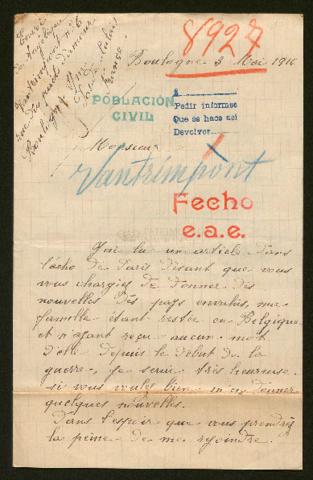 8927
Boulogne 3 Mai 1916
POBLACIÓN
CIVIL
A
Pedir informes
Que se hace así
Devolver
Monsieur
Vantrimpont
Fecho
e.a.e.
J'ai lu un article dans
l'écho de Paris disant que vous
vous chargiez de donner des
nouvelles des pays envahis, ma
famille étant restée en Belgique
et n'ayant reçu aucun mot
d'elle depuis le début de la
guerre, je serais très heureuse
si vous voulez bien m'en donner
quelques nouvelles.
Dans l'espoir que vous prendrez
la peine de me rejoindre.